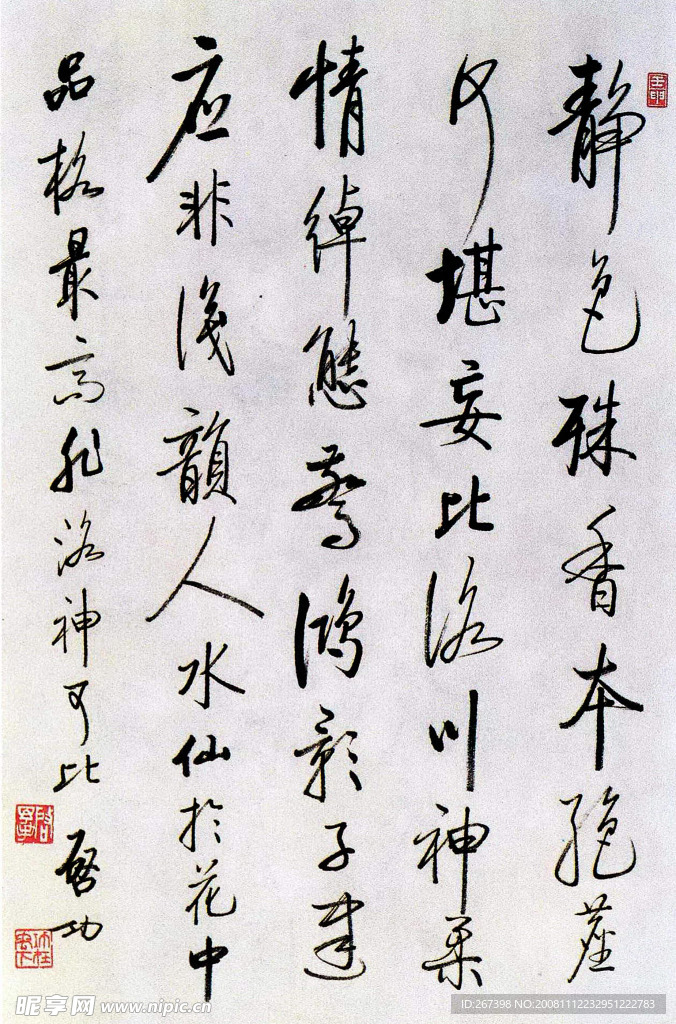 静色殊香本绝尘
何堪妄比洛川神柔
情绰态惊鸿影子建
应非浅韵人水仙于花中
品格最高非洛神可比 启功
昵享网 www.nipic.cn
ID:267398 NO:20081112232951222783